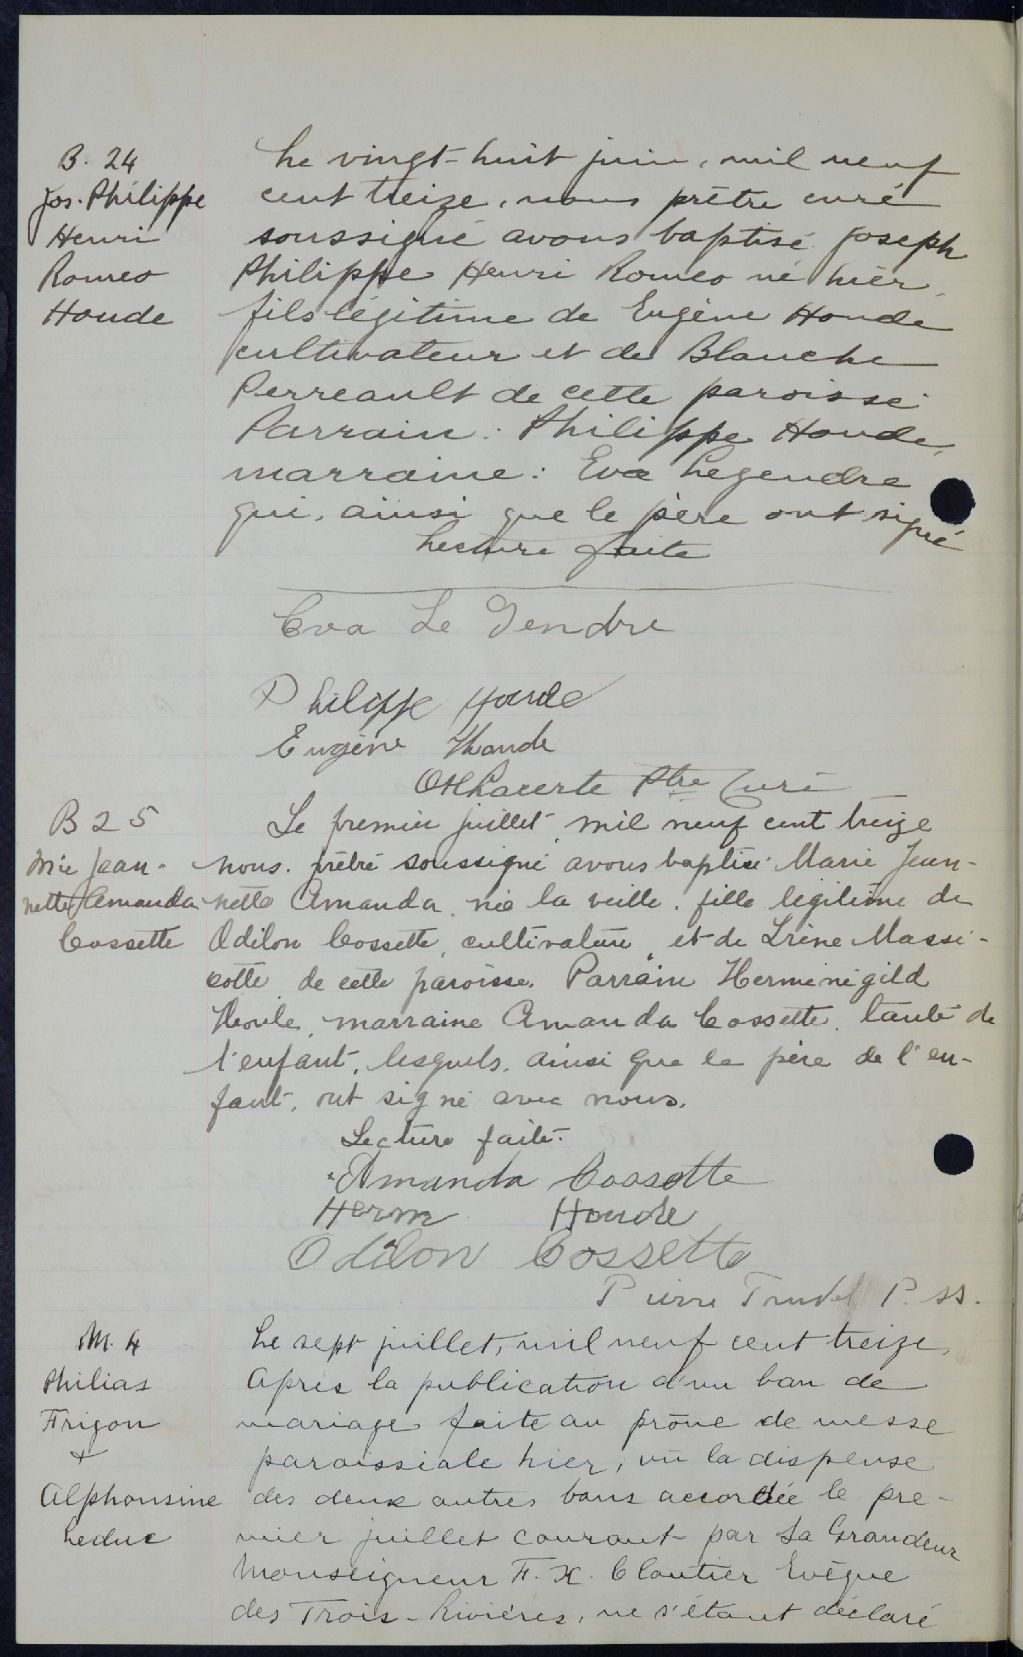 B. 24
Jos. Philippe
Henri
Romeo
Houde
Le vingt-huit juin, mil neuf
cent treize, nous prêtre curé
soussigné avons baptisé Joseph
Philippe Henri Romeo né hier,
fils légitime de Eugène Houde
cultivateur et de Blanche
Perreault de cette paroisse.
Parrain: Philippe Houde,
marraine: Eva Legendre
qui, ainsi que le père ont signé
Lecture faite
Eva Le Gendre
Philippe Houde
Eugène Houde
Lacerte Ptre Curé
B 25
Mie Jean-
nette Amanda
Cossette
Le premier juillet mil neuf cent treize
nous, prêtre soussigné avons baptisé Marie Jean-
nette Amanda, née la veille, fille légitime de
Odilon Cossette, cultivateur, et de Irène Massi-
cotte de cette paroisse. Parrain Herménégild
Houle, marraine Amanda Cossette, tante de
l'enfant, lesquels, ainsi que le père de l'en-
fant, ont signé avec nous.
Lecture faite.
Amanda Cossette
Herm Houde
Odilon Cossette
Pierre Trudel P. ss.
M. 4
Philias
Frigon
+
Alphonsine
Leduc
Le sept juillet, mil neuf cent treize,
Après la publication d'un ban de
mariage faite au prône de messe
paroissiale hier, vu la dispense
des deux autres bans accordée le pre-
mier juillet courant par Sa Grandeur
Monseigneur F. X. Cloutier Evêque
des Trois-Rivières, ne s'étant déclaré